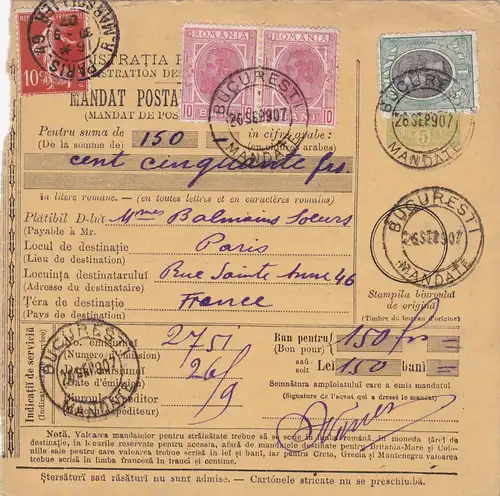 ROMANIA ROMANIA
STRATIA P
ISTRATION DES
10 BANI BANI 10
BUCURESTI
26 SEP 907
MANDATE
BUCURESTI
26 SEP 907
MANDATE
PARIS
10
5
MANDAT POSTA
(MANDAT DE POS
Pentru suma de 150 în cifre arabe:
(De la somme de) (en chiffres arabes)
cent cinquante frs.
în litere romane. — (en toutes lettres et en caractères romains)
Plătibil D-lui Mmes Balmains Soeurs
(Payable à Mr.
Locul de destinație Paris
(Lieu de destination)
Locuința destinatarului Rue Sainte Anne 46
(Adresse du destinataire)
Țéra de destinație France
(Pays de destination)
BUCURESTI
26 SEP 907
MANDATE
Stampila biuroului
de origină
(Timbre du bureau d'origine)
Indicații de serviciu
No. emisiunei 2751
(Numero d'émission)
26/9
Date d'émission)
Biuroul expeditor
expéditeur)
BUCURESTI
MANDATE
Bun pentru 150 frs
(Bon pour)
saŭ
soit
Lei 150 bani
Semnătura amploiatului care a emis mandatul
(Signature de l'agent qui a dressé le mandat)
Notă. Valoarea mandatelor pentru străinătate trebue să se scrie în limba română, în moneda țărei de
destinație, în coloanele reservate pentru aceasta, afară de mandatele destinate pentru Britania-Mare și Colo-
niile sale pentru care valoarea trebue scrisă în lei și bani, iar pentru Creta, Grecia și Muntenegru valoarea
trebue scrisă în limba franceză în franci și centime.
Ștersături sau răsături nu sunt admise. — Cartónele stricate nu se preschimbă.